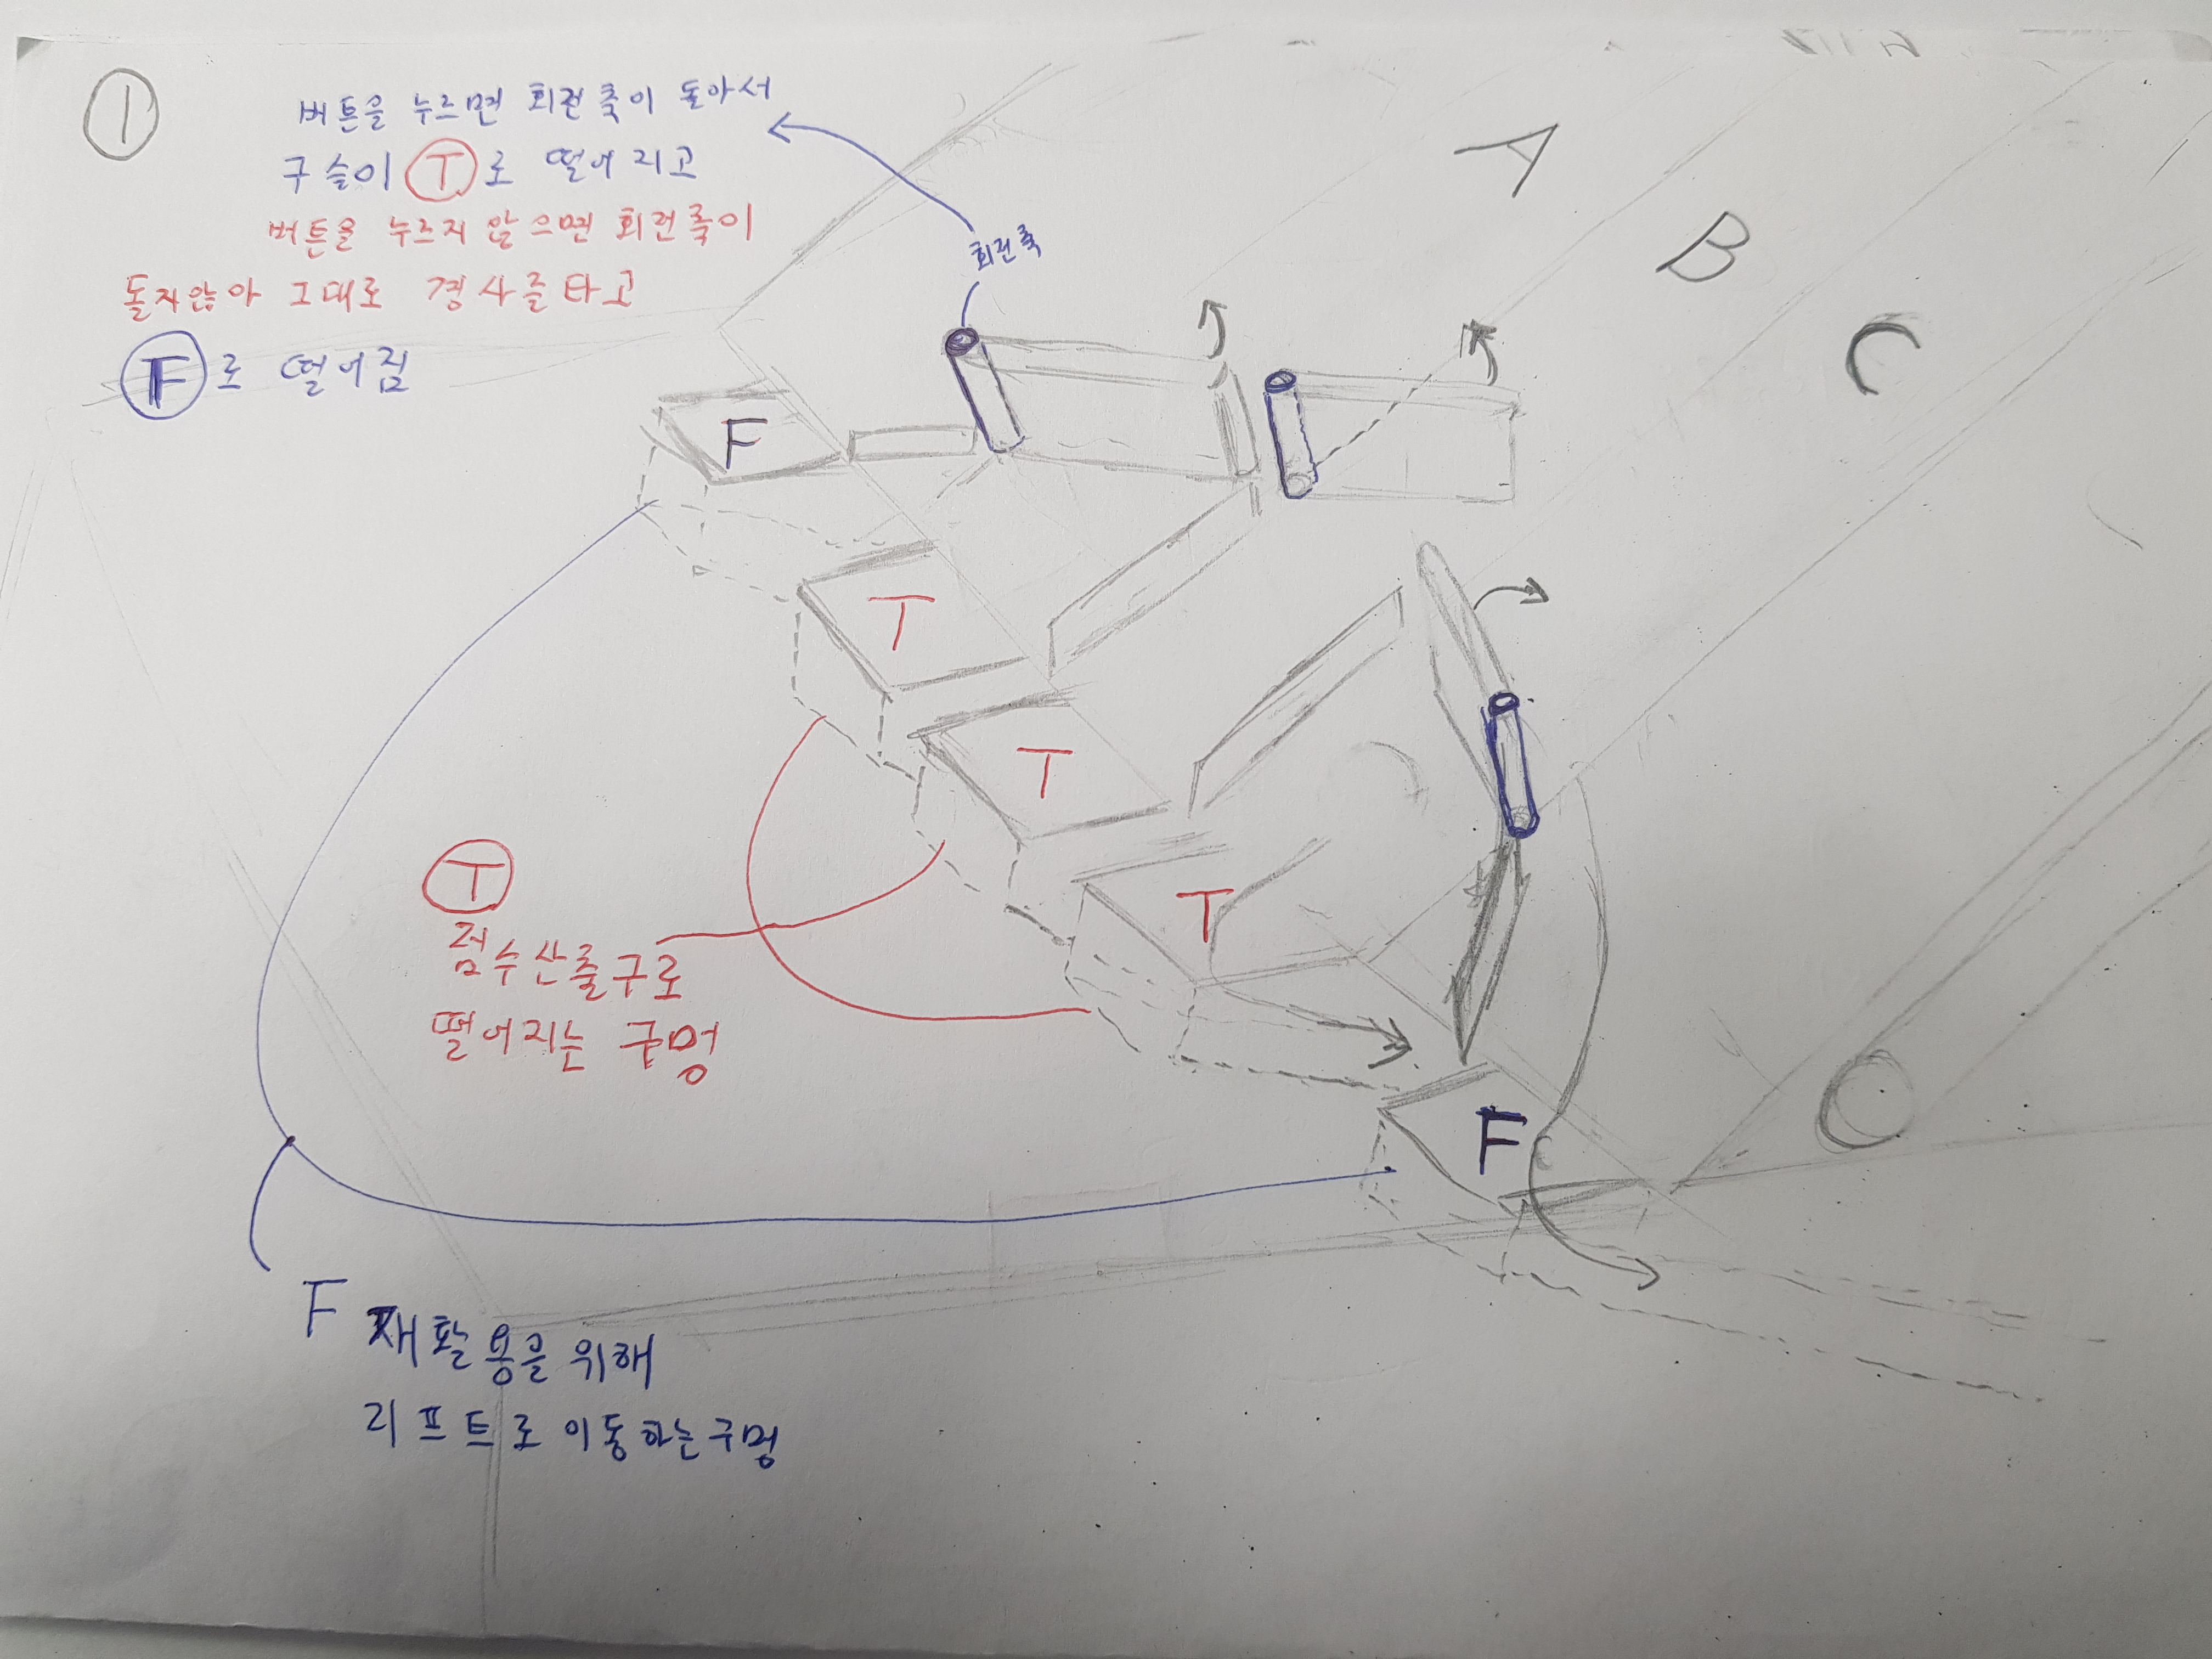 ①
버튼을 누르면 회전축이 돌아서
구슬이 Ⓣ로 떨어지고
버튼을 누르지 않으면 회전축이
돌지않아 그대로 경사를타고
Ⓕ로 떨어짐
회전축
A
B
C
F
T
T
T
F
Ⓣ
점수산출구로
떨어지는 구멍
F 재활용을 위해
리프트로 이동하는구멍